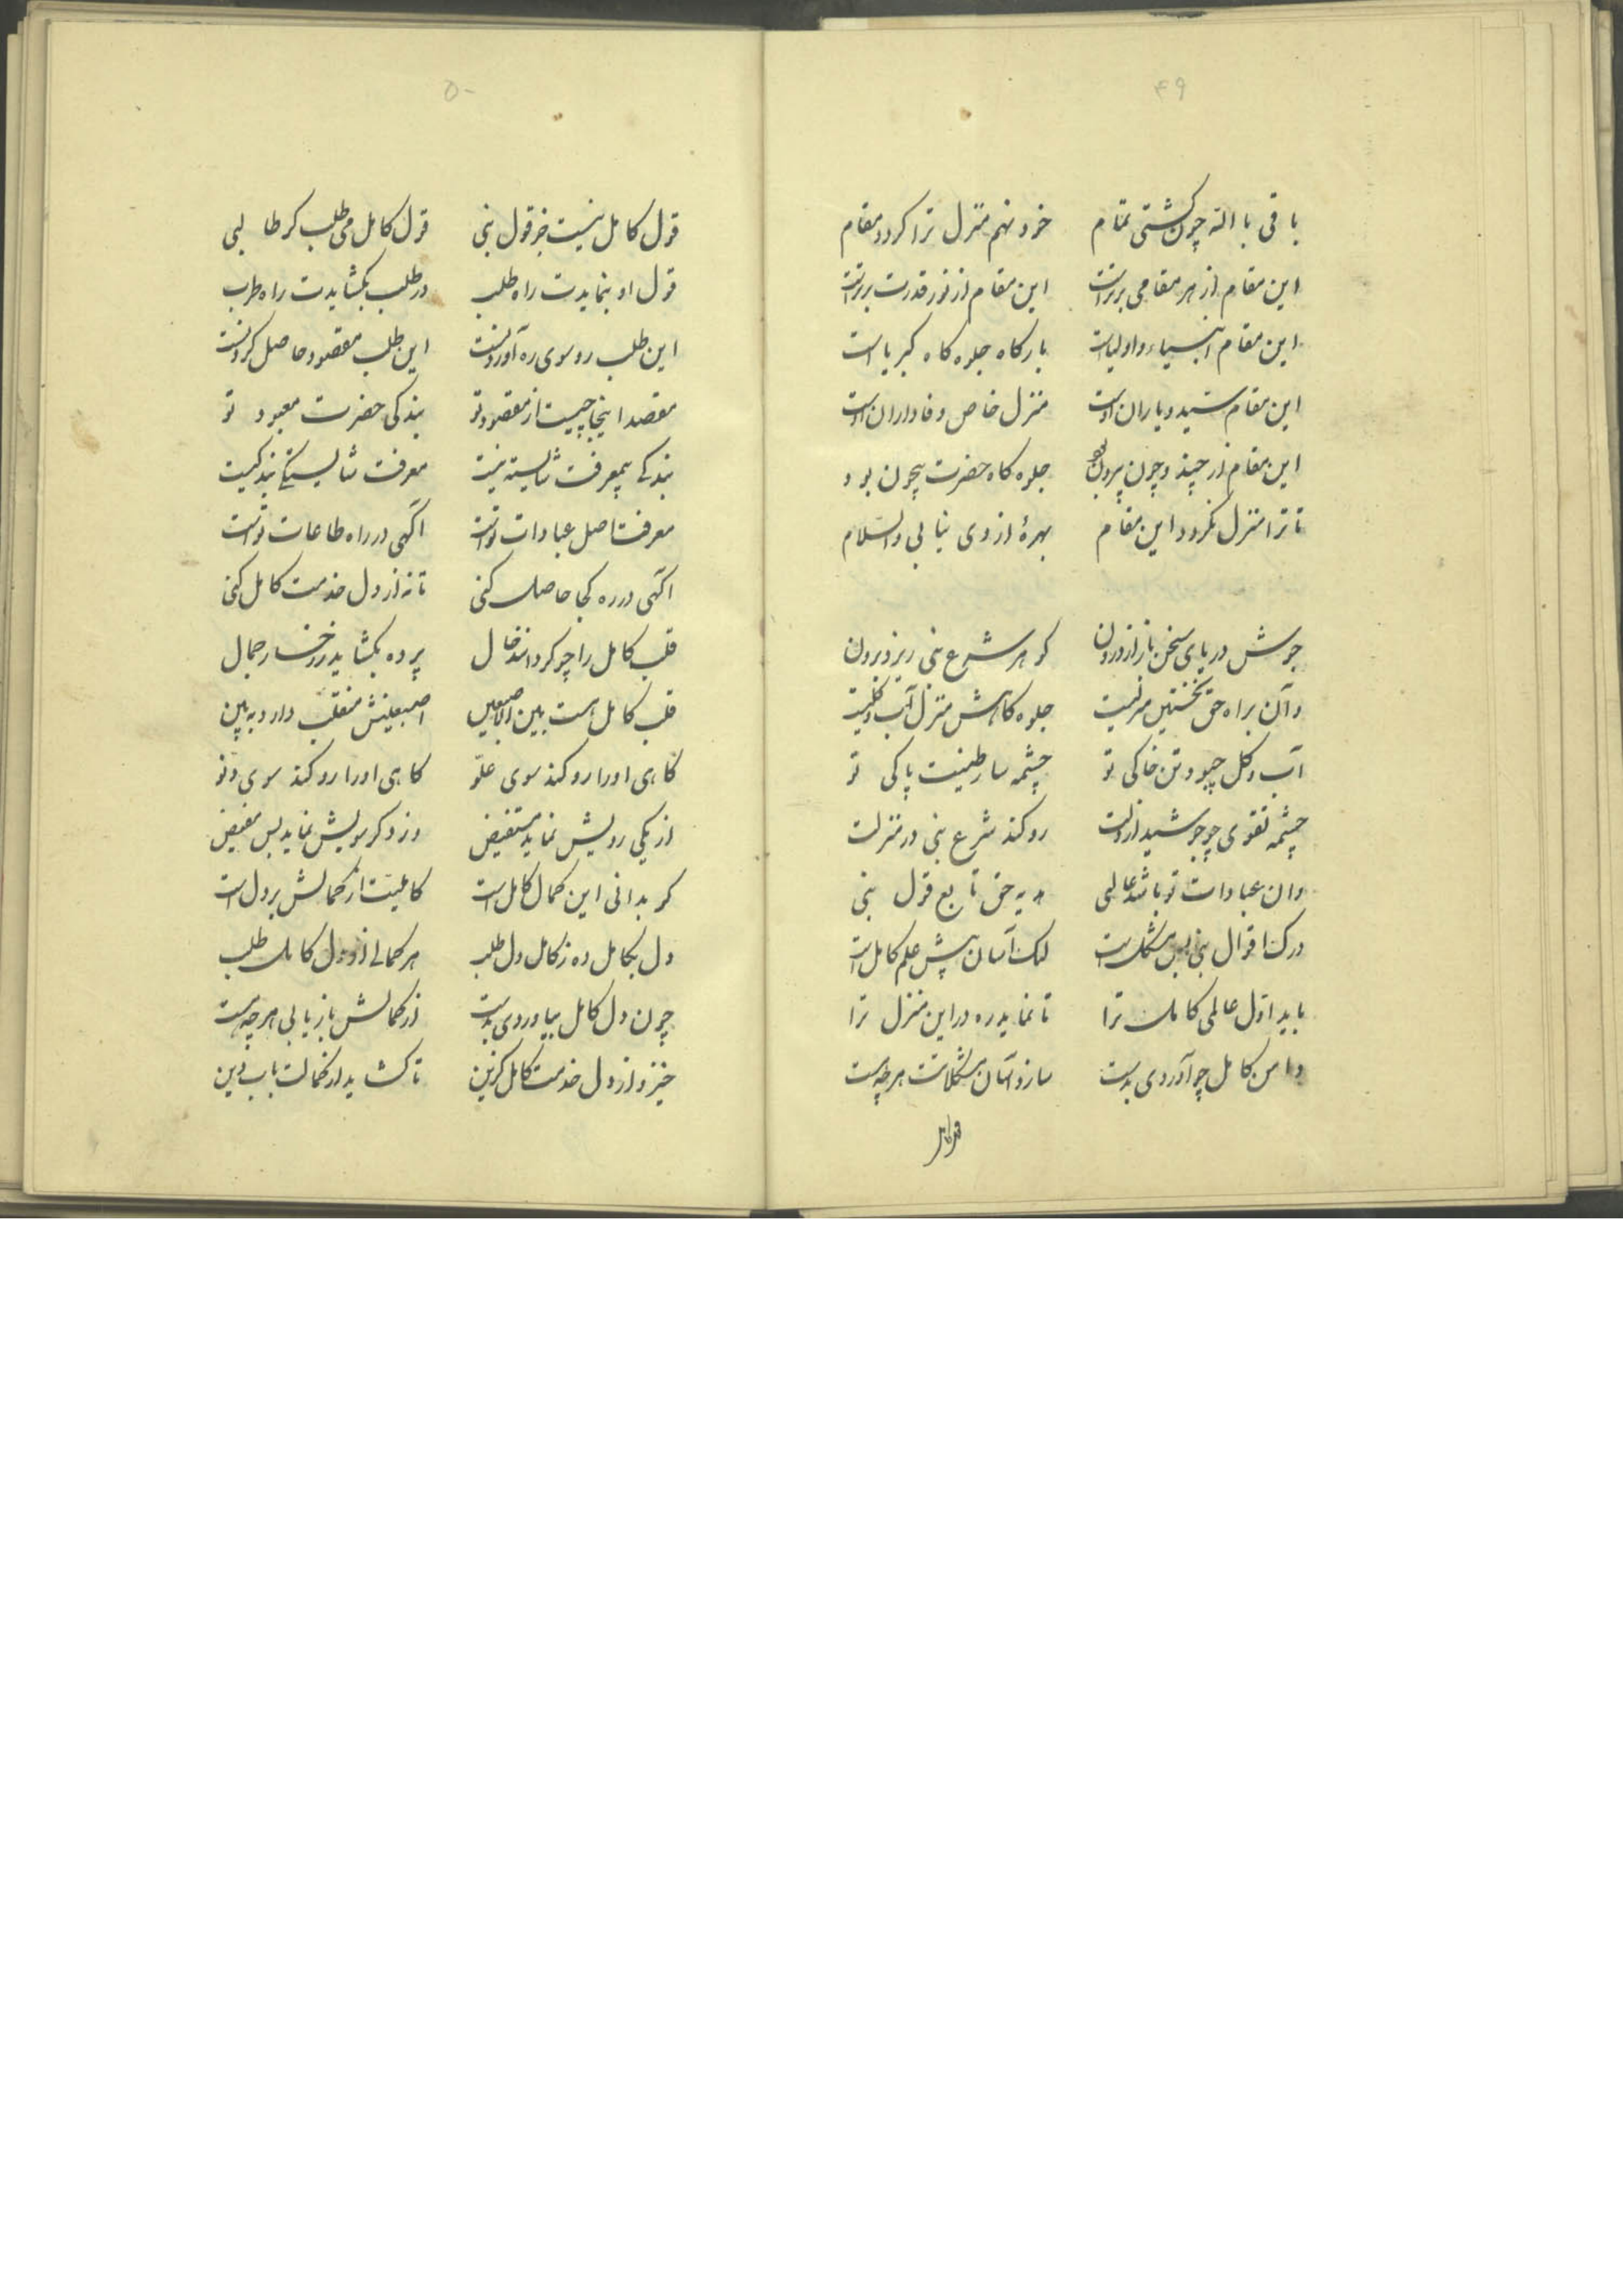 ۴۹
باقی بالله چون گشتی تمام خود نهم منزل ترا کردد مقام
این مقام از هر مقامی برتر است این مقام از نور قدرت برتر است
این مقام انبیاء و اولیاست بارکاه جلوه کاه کبریا است
این مقام سید و یاران اوست منزل خاص وفاداران اوست
این مقام از چند و چون بیرون بود جلوه کاه حضرت بیچون بود
تا ترا منزل نکردد این مقام بهرهٔ از وی نیابی والسلام
جوش دریای سخن باز از درون کوهر شرع نبی ریزد برون
وآن براه حق نخستین منزلیست جلوه کاهش منزل آب و کلیست
آب و کل چبود تن خاکی تو چشمه سار طینت پاکی تو
چشمه تقوی چو جوشید از دلت رو کند شرع نبی در منزلت
وان عبادات تو باشد عالمی هدیه حق تابع قول نبی
درک اقوال نبی بس مشکل است لیک آسان پیش علم کامل است
باید اول عالمی کامل ترا تا نماید ره در این منزل ترا
دامن کامل چو آوردی بدست سازد آسان مشکلاتت هر چه هست
قول کامل نیست جز قول نبی قول کامل می طلب کر طالبی
قول او بنمایدت راه طلب در طلب بکشایدت راه طرب
این طلب رو سوی ره آوردنست این طلب مقصود حاصل کردنست
مقصد اینجا چیست از مقصود تو بندکی حضرت معبود تو
بندکی بیمعرفت شایسته نیست معرفت شایستکی بندکیست
معرفت اصل عبادات تو است آکهی در راه طاعات تو است
آکهی در ره کجا حاصل کنی تا نه از دل خدمت کامل کنی
قلب کامل را چو کرداند خیال پرده بکشاید ز رخسار جمال
قلب کامل هست بین الاصبعین اصبعینش منقلب دارد ببین
کاهی او را رو کند سوی علو کاهی او را رو کند سوی دنو
از یکی رویش نماید مستفیض وز دکر سویش نماید بس مفیض
کر بدانی این کمال کامل است کاملیت از کمالش بر دل است
دل بکامل ده ز کامل دل طلب هر کمالی از دل کامل طلب
چون دل کامل بیاوردی بدست از کمالش باز یابی هر چه هست
خیز و از دل خدمت کامل کزین تا کشاید از کمالت باب دین